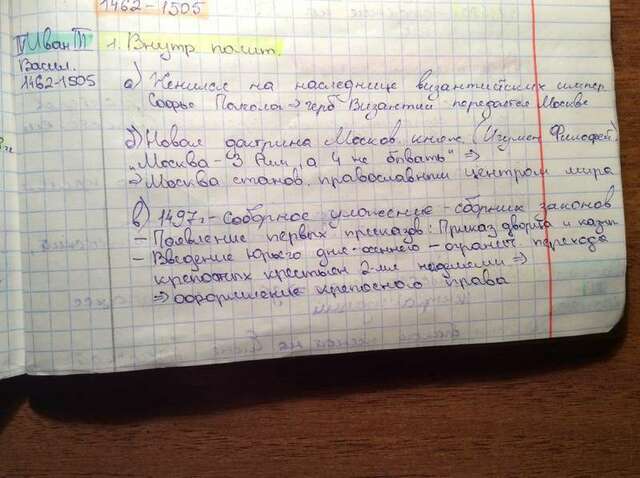 1462-1505
IV Иван III
Васил.
1462-1505
1. Внутр полит.
а) Женился на наследнице византийских импер.
Софье Палеолог ⇒ герб Византии передаётся Москве
б) Новая доктрина Москов. княж. (Игумен Филофей)
"Москва - 3 Рим, а 4 не бывать" ⇒
⇒ Москва станов. православным центром мира
в) 1497г. - Соборное уложение - сборник законов
- Появление первых приказов: Приказ дворца и казны
- Введение Юрьего дня осеннего - огранич. перехода
крепостных крестьян 2-мя неделями ⇒
⇒ оформление крепосного права